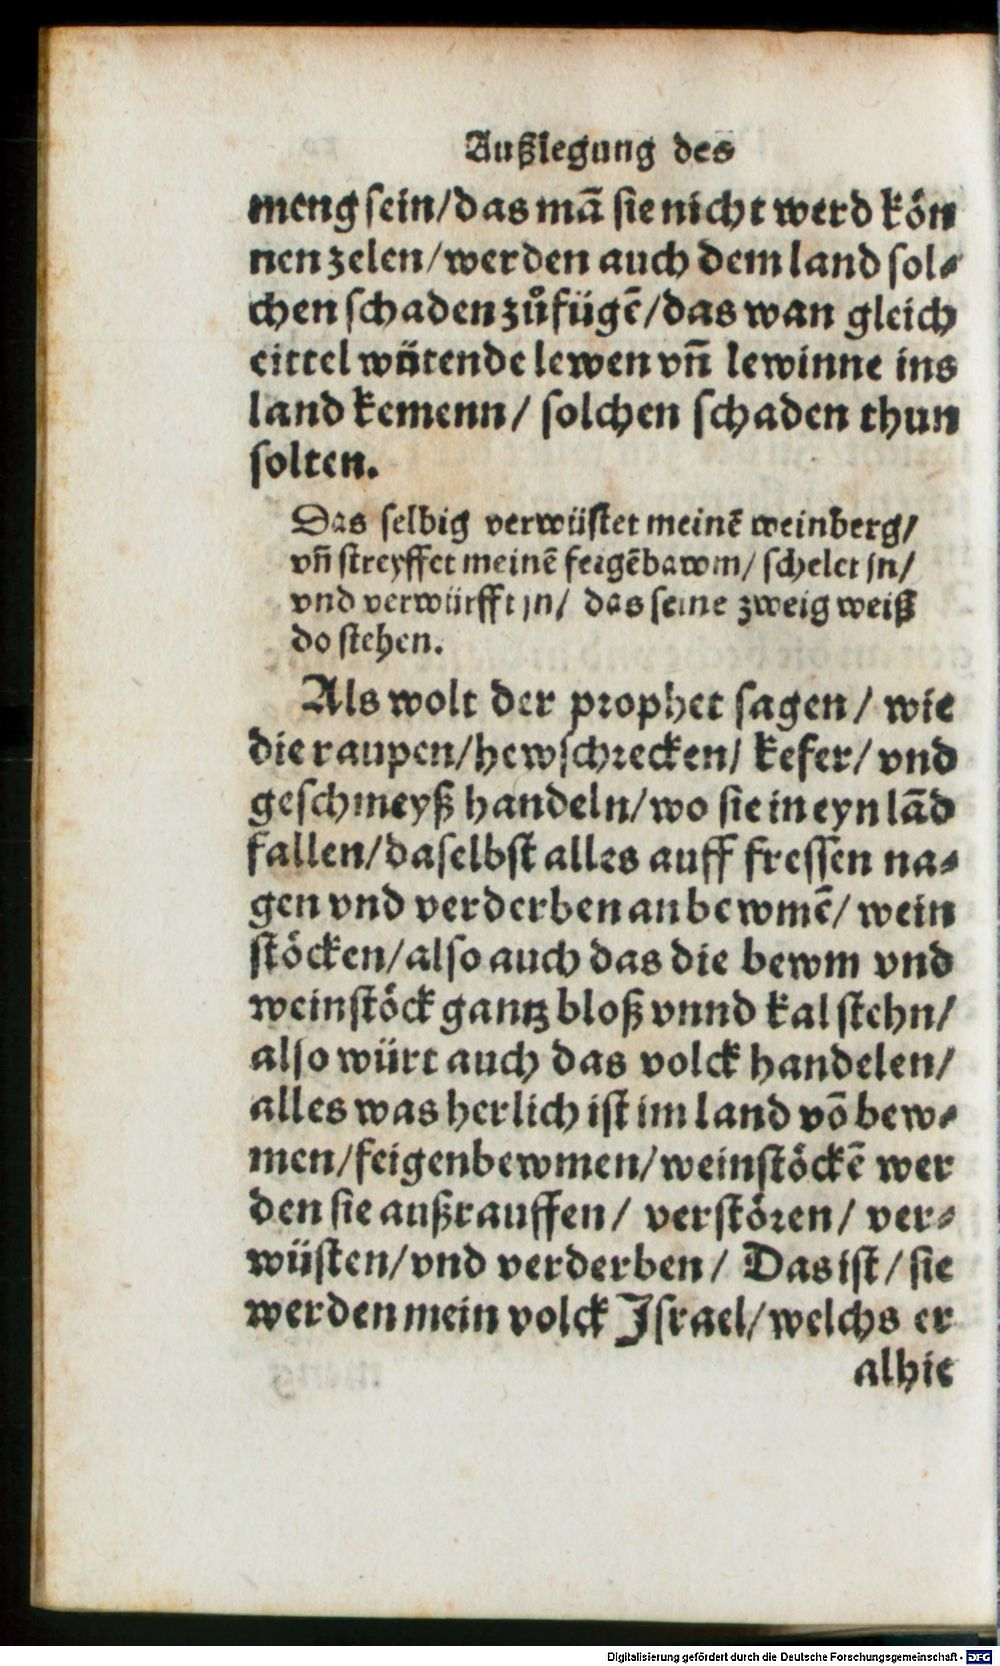 Außlegung des
meng sein/das mā sie nicht werd kön
nen zelen/werden auch dem land sol⸗
chen schaden zůfügē/das wan gleich
eittel wütende lewen vn̄ lewinne ins
land kemenn/ solchen schaden thun
solten.
Das selbig verwüstet meinē weinberg/
vn̄ streyffet meinē feigēbawm/ schelet jn/
vnd verwürfft jn/ das seine zweig weiß
do stehen.
Als wolt der prophet sagen/ wie
die raupen/hewschrecken/ kefer/ vnd
geschmeyß handeln/wo sie in eyn lād
fallen/daselbst alles auff fressen na⸗
gen vnd verderben an bewmē/ wein
stöcken/also auch das die bewm vnd
weinstöck gantz bloß vnnd kal stehn/
also würt auch das volck handelen/
alles was herlich ist im land vō bew⸗
men/feigenbewmen/weinstöckē wer
den sie außrauffen/ verstören/ ver⸗
wüsten/vnd verderben/ Das ist/ sie
werden mein volck Israel/welchs er
alhie
Digitalisierung gefördert durch die Deutsche Forschungsgemeinschaft - DFG